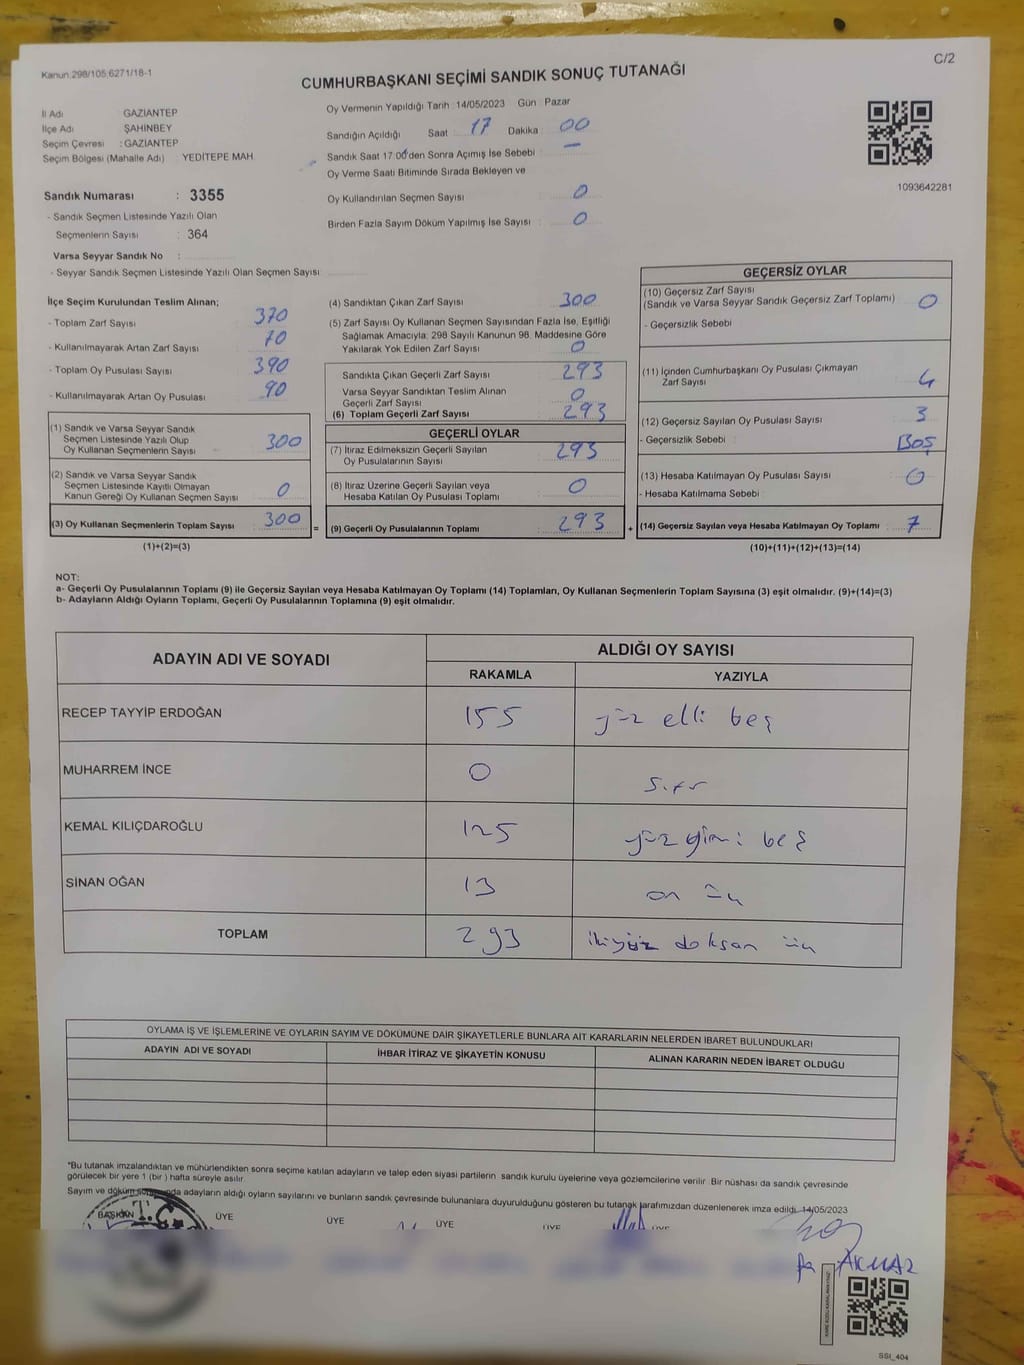 Kanun:298/105;6271/18-1
C/2
CUMHURBAŞKANI SEÇİMİ SANDIK SONUÇ TUTANAĞI
İl Adı GAZIANTEP
İlçe Adı ŞAHİNBEY
Seçim Çevresi : GAZİANTEP
Seçim Bölgesi (Mahalle Adı) : YEDİTEPE MAH.
Oy Vermenin Yapıldığı Tarih :14/05/2023 Gün Pazar
Sandığın Açıldığı Saat 17 Dakika 00
Sandık Saat 17:00'den Sonra Açımış İse Sebebi : —
Oy Verme Saati Bitiminde Sırada Bekleyen ve
Oy Kullandırılan Seçmen Sayısı : 0
Birden Fazla Sayım Döküm Yapılmış İse Sayısı : 0
1093642281
Sandık Numarası : 3355
- Sandık Seçmen Listesinde Yazılı Olan
Seçmenlerin Sayısı : 364
Varsa Seyyar Sandık No :
- Seyyar Sandık Seçmen Listesinde Yazılı Olan Seçmen Sayısı :
İlçe Seçim Kurulundan Teslim Alınan;
- Toplam Zarf Sayısı 370
- Kullanılmayarak Artan Zarf Sayısı 70
- Toplam Oy Pusulası Sayısı 390
- Kullanılmayarak Artan Oy Pusulası 90
(1) Sandık ve Varsa Seyyar Sandık
Seçmen Listesinde Yazılı Olup
Oy Kullanan Seçmenlerin Sayısı 300
(2) Sandık ve Varsa Seyyar Sandık
Seçmen Listesinde Kayıtlı Olmayan
Kanun Gereği Oy Kullanan Seçmen Sayısı 0
(3) Oy Kullanan Seçmenlerin Toplam Sayısı 300 =
(1)+(2)=(3)
(4) Sandıktan Çıkan Zarf Sayısı 300
(5) Zarf Sayısı Oy Kullanan Seçmen Sayısından Fazla İse, Eşitliği
Sağlamak Amacıyla; 298 Sayılı Kanunun 98. Maddesine Göre
Yakılarak Yok Edilen Zarf Sayısı 0
Sandıkta Çıkan Geçerli Zarf Sayısı 293
Varsa Seyyar Sandıktan Teslim Alınan
Geçerli Zarf Sayısı 0
(6) Toplam Geçerli Zarf Sayısı 293
GEÇERLİ OYLAR
(7) İtiraz Edilmeksizin Geçerli Sayılan
Oy Pusulalarının Sayısı 293
(8) İtiraz Üzerine Geçerli Sayılan veya
Hesaba Katılan Oy Pusulası Toplamı 0
(9) Geçerli Oy Pusulalarının Toplamı 293 +
GEÇERSİZ OYLAR
(10) Geçersiz Zarf Sayısı
(Sandık ve Varsa Seyyar Sandık Geçersiz Zarf Toplamı) 0
- Geçersizlik Sebebi
(11) İçinden Cumhurbaşkanı Oy Pusulası Çıkmayan
Zarf Sayısı 4
(12) Geçersiz Sayılan Oy Pusulası Sayısı 3
- Geçersizlik Sebebi : BOŞ
(13) Hesaba Katılmayan Oy Pusulası Sayısı 0
- Hesaba Katılmama Sebebi
(14) Geçersiz Sayılan veya Hesaba Katılmayan Oy Toplamı 7
(10)+(11)+(12)+(13)=(14)
NOT:
a- Geçerli Oy Pusulalarının Toplamı (9) ile Geçersiz Sayılan veya Hesaba Katılmayan Oy Toplamı (14) Toplamları, Oy Kullanan Seçmenlerin Toplam Sayısına (3) eşit olmalıdır. (9)+(14)=(3)
b- Adayların Aldığı Oyların Toplamı, Geçerli Oy Pusulalarının Toplamına (9) eşit olmalıdır.
ADAYIN ADI VE SOYADI
ALDIĞI OY SAYISI
RAKAMLA YAZIYLA
RECEP TAYYİP ERDOĞAN 155 yüz elli beş
MUHARREM İNCE 0 sıfır
KEMAL KILIÇDAROĞLU 125 yüz yirmi beş
SİNAN OĞAN 13 on üç
TOPLAM 293 ikiyüz doksan üç
OYLAMA İŞ VE İŞLEMLERİNE VE OYLARIN SAYIM VE DÖKÜMÜNE DAİR ŞİKAYETLERLE BUNLARA AİT KARARLARIN NELERDEN İBARET BULUNDUKLARI
ADAYIN ADI VE SOYADI İHBAR İTİRAZ VE ŞİKAYETİN KONUSU ALINAN KARARIN NEDEN İBARET OLDUĞU
*Bu tutanak imzalandıktan ve mühürlendikten sonra seçime katılan adayların ve talep eden siyasi partilerin sandık kurulu üyelerine veya gözlemcilerine verilir. Bir nüshası da sandık çevresinde
görülecek bir yere 1 (bir) hafta süreyle asılır.
Sayım ve döküm sonunda adayların aldığı oyların sayılarını ve bunların sandık çevresinde bulunanlara duyurulduğunu gösteren bu tutanak tarafımızdan düzenlenerek imza edildi. 14/05/2023
BAŞKAN ÜYE ÜYE ÜYE ÜYE ÜYE
SSI_404